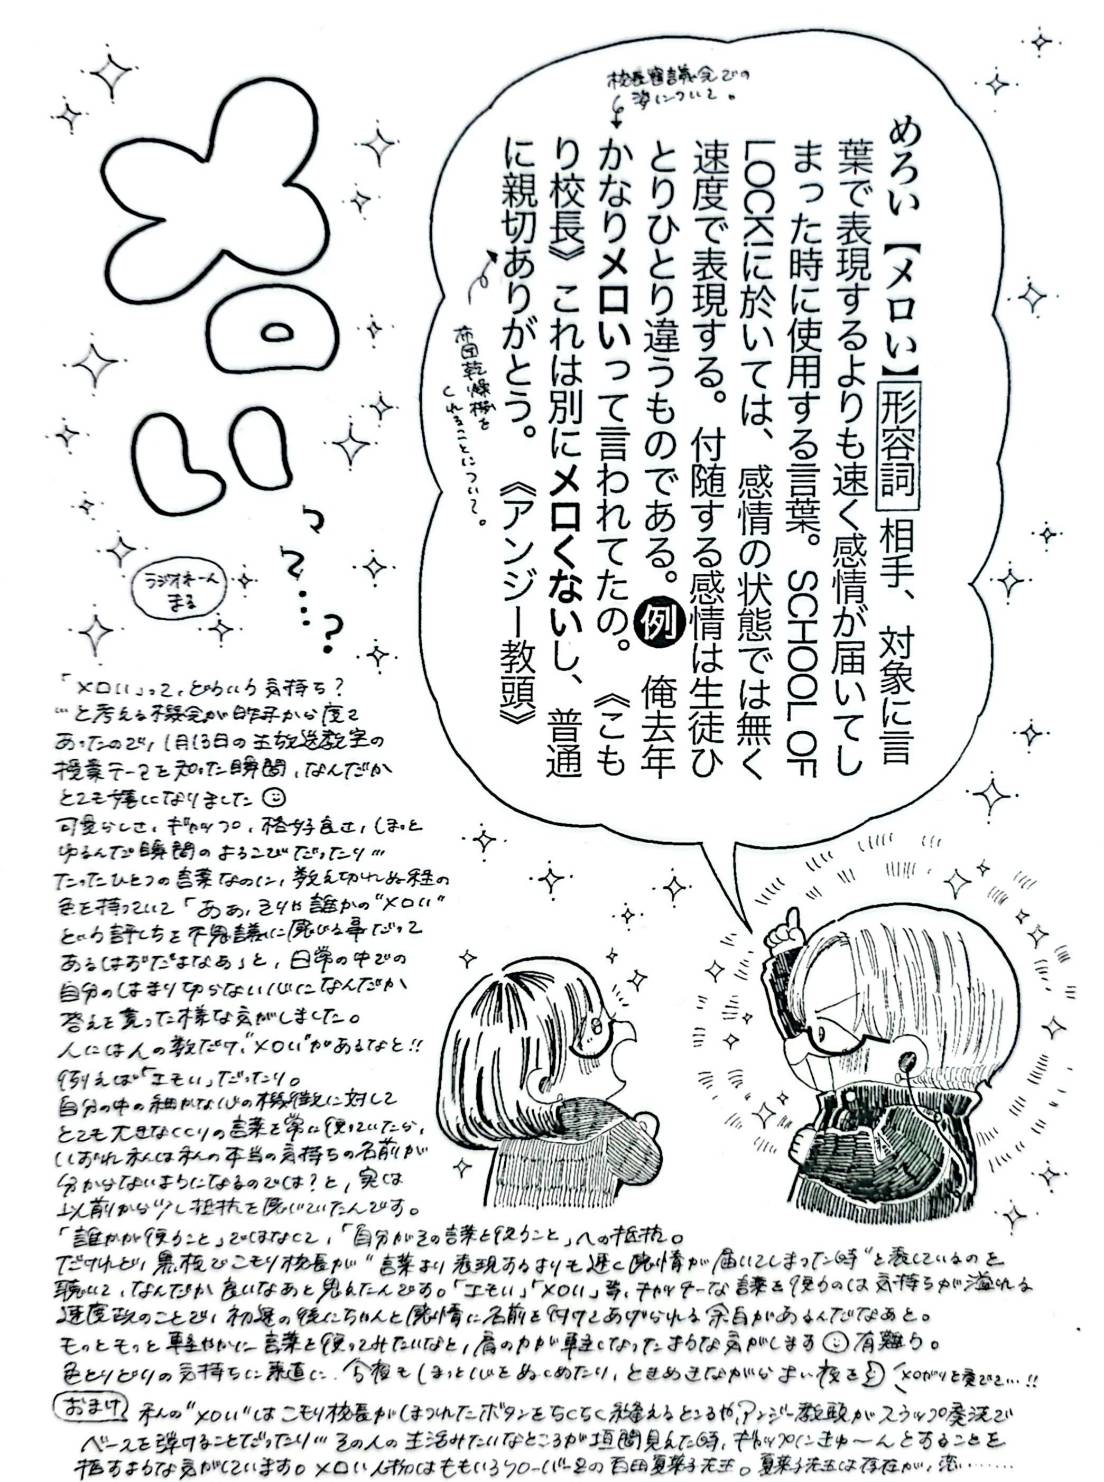 メロい
って…?
ラジオネーム
まる
めろい【メロい】形容詞 相手、対象に言
葉で表現するよりも速く感情が届いてし
まった時に使用する言葉。SCHOOL OF
LOCK!に於いては、感情の状態では無く
速度で表現する。付随する感情は生徒ひ
とりひとり違うものである。例 俺去年
かなりメロいって言われてたの。《こも
り校長》これは別にメロくないし、普通
に親切ありがとう。《アンジー教頭》
校長冒議会での
姿について。
布団乾燥機を
くれることについて。
「メロい」って、どういう気持ち?
…と考える機会が昨年から度々
あったので、1月13日の生放送教室の
授業テーマを知った瞬間、なんだか
とても嬉しくなりました
可愛らしさ、ギャップ、格好良さ、ほっと
ゆるんだ瞬間のよろこびだったり…
たったひとつの言葉なのに、数え切れぬ程の
色を持っていて「ああ、そりゃ誰かの"メロい"
という評しを不思議に感じる事だって
あるはずだよなあ」と、日常の中での
自分のはまり切らない心になんだか
答えを貰った様な気がしました。
人には人の数だけ、"メロい"があるなと!!
例えば「エモい」だったり。
自分の中の細かな心の機微に対して
とても大きなくくりの言葉を常に使っていたら、
いずれ私は私の本当の気持ちの名前が
分からないようになるのでは?と、実は
以前から少し抵抗を感じていたんです。
「誰かが使うこと」ではなくて、「自分がその言葉を使うこと」への抵抗。
だけれど、黒板でこもり校長が"言葉より表現するよりも速く感情が届いてしまった時"と表しているのを
聴いて、なんだか良いなあと思えたんです。「エモい」「メロい」等、キャッチーな言葉を使うのは気持ちが溢れる
速度故のことで、初速の後にちゃんと感情に名前を付けてあげられる余白があるんだなあと。
もっともっと軽やかに言葉を使ってみたいなと、肩の力が軽くなったような気がします 有難う。
色とりどりの気持ちに素直に、今夜も ほっと心をぬくめたり、ときめきながら よい夜を メロがりを愛でて…!!
おまけ 私の"メロい"はこもり校長がほつれたボタンをちくちく縫えるところや、アンジー教頭がスラップ奏法で
ベースを弾けることだったり… その人の生活みたいなところが垣間見えた時、ギャップにきゅ〜んとすることを
指すような気がしています。メロい人物はももいろクローバーZの百田夏菜子先生。夏菜子先生は存在が、恋……